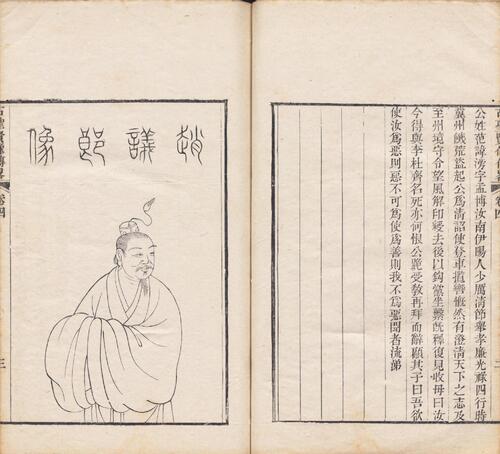 公姓范諱滂字孟博汝南伊陽人少厲清節舉孝廉光祿四行時
冀州饑荒盜起公爲清詔使登車攬轡慨然有澄清天下之志及
至州境守令望風解印綬去後以鉤黨坐繫旣釋復見收母曰汝
今得與李杜齊名死亦何恨公跪受敎再拜而辭顧其子曰吾欲
使汝爲惡則惡不可爲使爲善則我不爲惡聞者流涕
趙議郎像
卷四
三